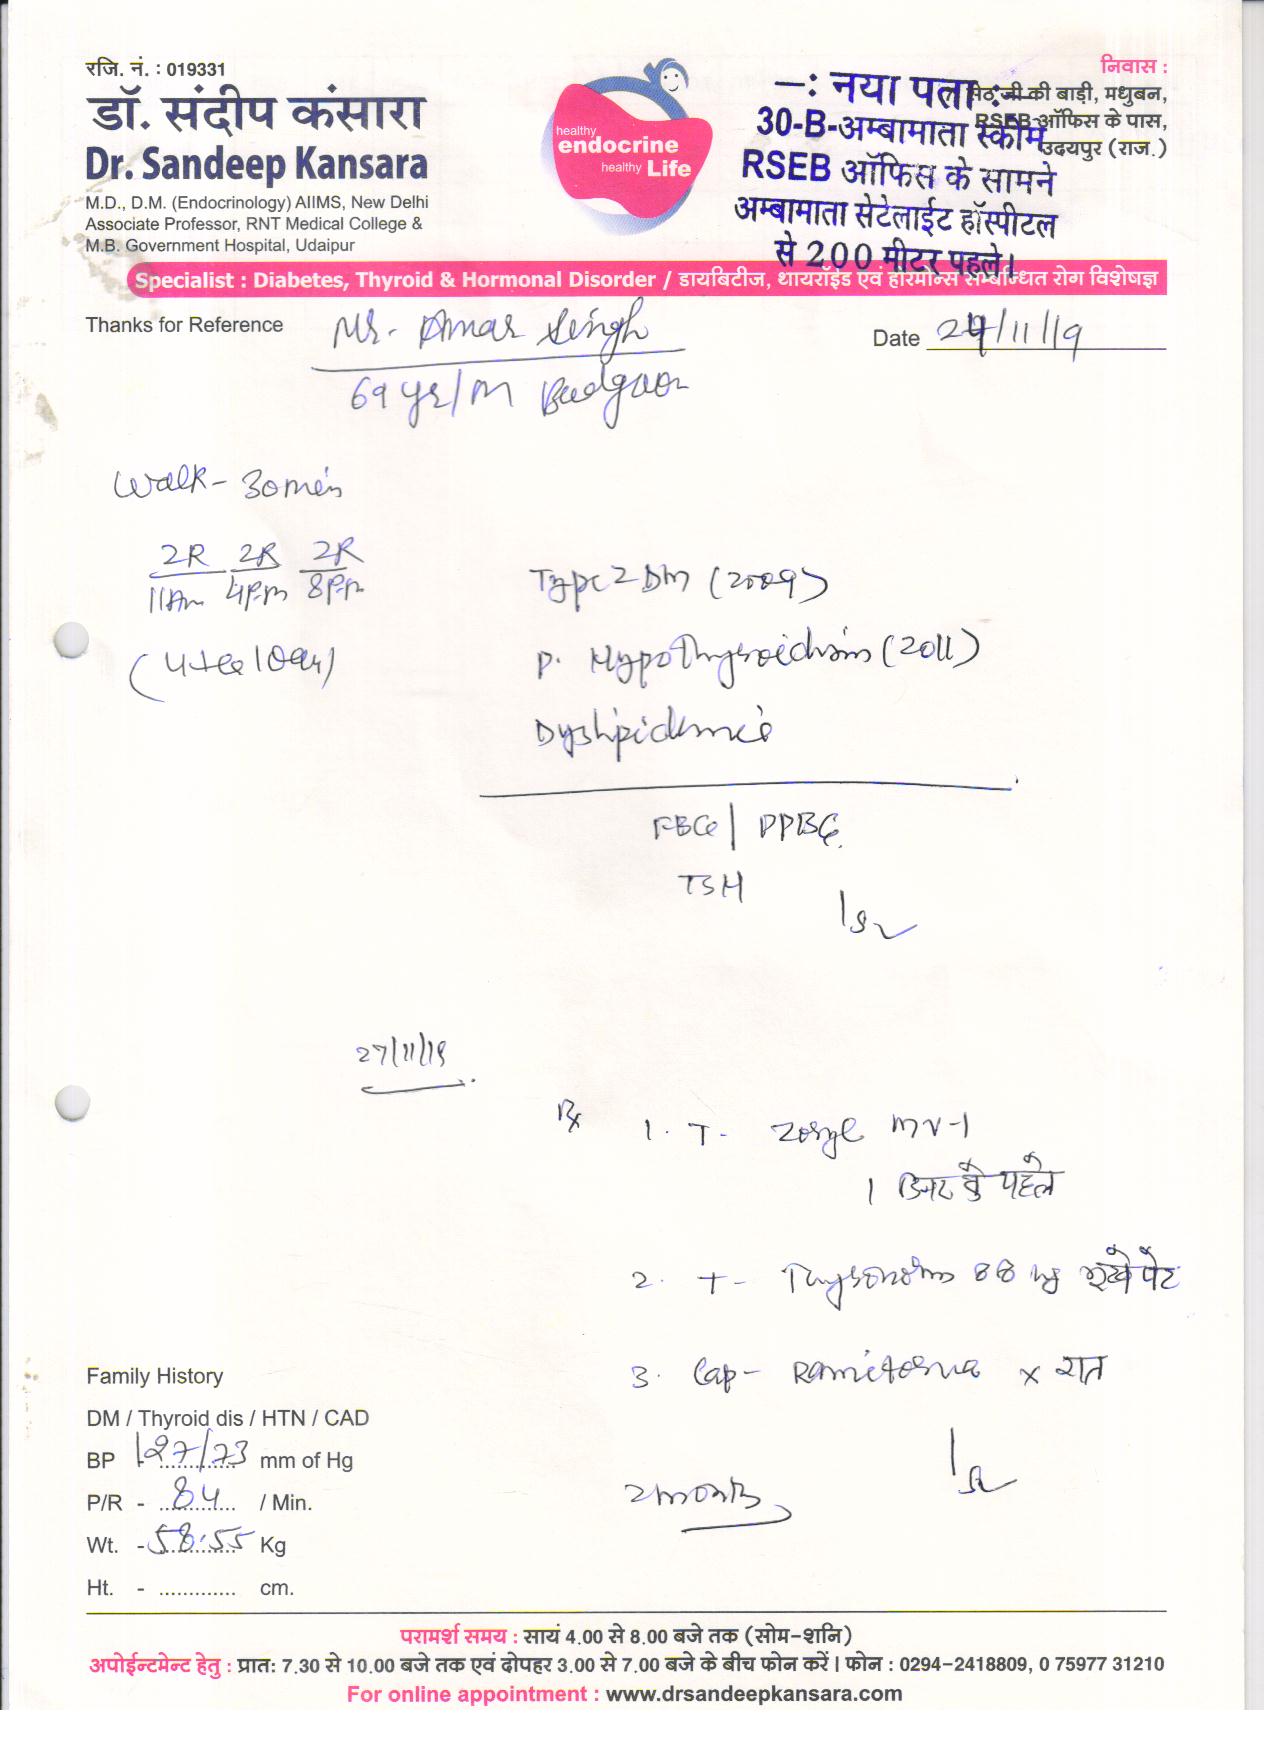 रजि. नं. : 019331
डॉ. संदीप कंसारा
Dr. Sandeep Kansara
M.D., D.M. (Endocrinology) AIIMS, New Delhi
Associate Professor, RNT Medical College &
M.B. Government Hospital, Udaipur
healthy
endocrine
healthy Life
निवास :
सेठ जी की बाड़ी, मधुबन,
RSEB ऑफिस के पास,
उदयपुर (राज.)
–: नया पता :–
30-B-अम्बामाता स्कीम
RSEB ऑफिस के सामने
अम्बामाता सेटेलाईट हॉस्पीटल
से 200 मीटर पहले।
Specialist : Diabetes, Thyroid & Hormonal Disorder / डायबिटीज, थायरॉइड एवं हारमोन्स सम्बन्धित रोग विशेषज्ञ
Thanks for Reference Mr. Amar Singh
Date 24/11/19
69 yr/M Badgaon
Walk - 30 min
2R 2R 2R
11Am 4pm 8pm
Type 2 DM (2009)
P. Hypothyroidism (2011)
Dyslipidemia
FBG | PPBG
TSH
27/11/19
Rx
1. T- Zoryl MV-1
1 डिनर के पहले
2. T- Thyronorm 88 ug भूखे पेट
3. Cap- Ramitorva x रात
2 months
Family History
DM / Thyroid dis / HTN / CAD
BP - 127/73 mm of Hg
P/R - 84 / Min.
Wt. - 58.55 Kg
Ht. - ............. cm.
परामर्श समय : सायं 4.00 से 8.00 बजे तक (सोम-शनि)
अपोईन्टमेन्ट हेतु : प्रात: 7.30 से 10.00 बजे तक एवं दोपहर 3.00 से 7.00 बजे के बीच फोन करें। फोन : 0294-2418809, 0 75977 31210
For online appointment : www.drsandeepkansara.com